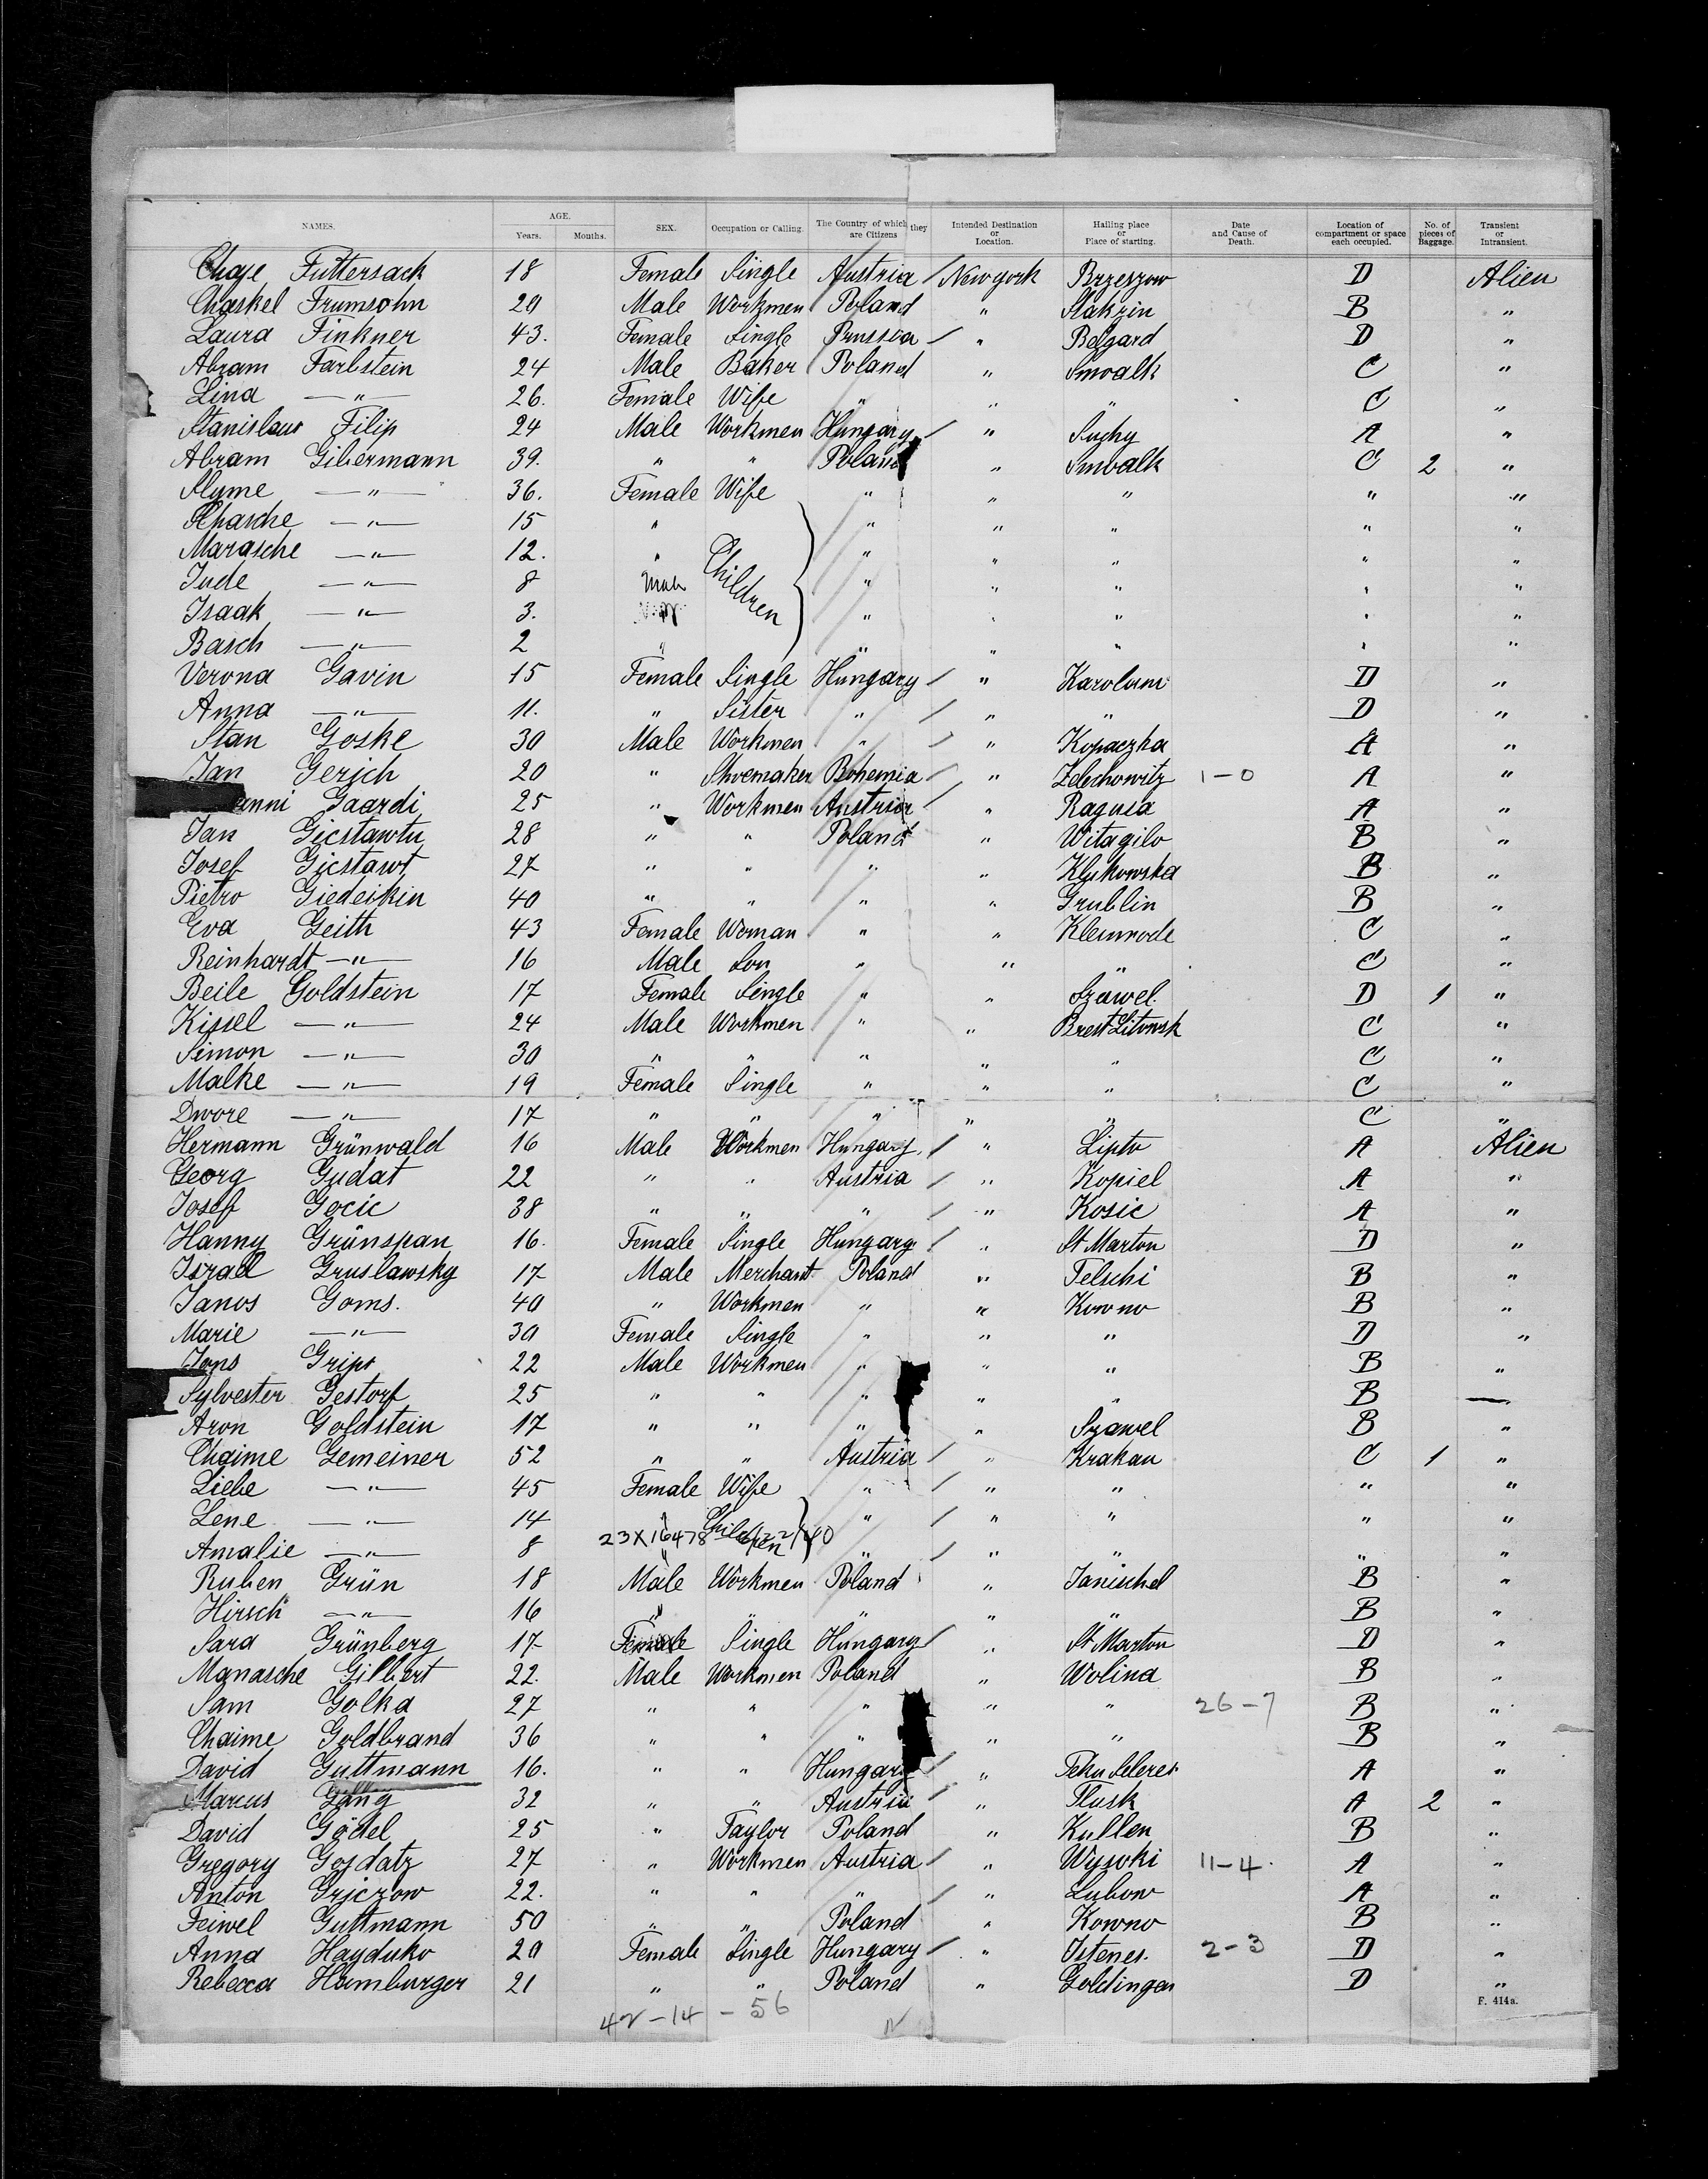 NAMES. AGE. Years. Months. SEX. Occupation or Calling. The Country of which they are Citizens Intended Destination or Location. Hailing place or Place of starting. Date and Cause of Death. Location of compartment or space each occupied. No. of pieces of Baggage. Transient or Intransient.
Chaje Futtersack 18 Female Single Austria / New york Brzeszow D Alien
Chaskel Frumsohn 20 Male Workmen Poland " Stakzin B "
Laura Finkner 43. Female Single Prussia / " Belgard D "
Abram Farbstein 24 Male Baker Poland " Suwalk C "
Lina —"— 26. Female Wife " " " C "
Stanislaus Filip 24 Male Workmen Hungary / " Suchy A "
Abram Gibermann 39. " " Poland " Suwalk C 2 "
Slyme —"— 36. Female Wife " " " " "
Schasche —"— 15 " Children " " " " "
Marasche —"— 12. " " " " " "
Jude —"— 8 Male " " " " "
Isaak —"— 3. " " " " "
Basch —"— 2 " " " " " "
Verona Gavin 15 Female Single Hungary / " Karolum D "
Anna —"— 11. " Sister " / " " D "
Stan Goske 30 Male Workmen " / " Kopaczka A "
Jan Gerjch 20 " Shoemaker Bohemia / " Zdechowitz 1-0 A "
anni Gaardi 25 " Workmen Austria / " Ragusa A "
Jan Gicstawtu 28 " " Poland " Witagilo B "
Josef Gicstawt 27 " " " " Klykowska B "
Pietro Giedeikin 40 " " " " Grublin B "
Eva Geith 43 Female Woman " " Klemrode C "
Reinhardt —"— 16 Male Son " " " C "
Beile Goldstein 17 Female Single " " Szawel. D 1 "
Kissel —"— 24 Male Workmen " " Brest Litowsk C "
Simon —"— 30 " " " " " C "
Malke —"— 19 Female Single " " " C "
Dwore —"— 17 " " " " " C "
Hermann Grünwald 16 Male Workmen Hungary. / " Lipto A Alien
Georg Gudat 22 " " Austria / " Kopiel A "
Josef Gocic 38 " " " / " Kosic A "
Hanny Grünspan 16. Female Single Hungary / " St Marton D "
Israel Gruslawsky 17 Male Merchant Poland " Telschi B "
Janos Goms. 40 " Workmen " " Kowno B "
Marie —"— 30 Female Single " " " D "
Jons Grips 22 Male Workmen " " " B "
Sylvester Gestorf 25 " " " " " B —
Aron Goldstein 17 " " " " Szawel B "
Chaime Gemeiner 52 " " Austria / " Krakau C 1 "
Liebe —"— 45 Female Wife " / " " " "
Lene —"— 14 " Children " / " " " "
23X16478
Amalie —"— 8 " " / " " " "
Ruben Grün 18 Male Workmen Poland " Janischel B "
Hirsch —"— 16 " " " " " B "
Sara Grünberg 17 Female Single Hungary / " St Marton D "
Manasche Gilbert 22. Male Workmen Poland " Wolina B "
Sam Golka 27 " " " " " 26-7 B "
Chaime Goldbrand 36 " " " " " B "
David Guttmann 16. " " Hungary / " A "
Marcus Gang 32 " " Austria / " Tlusk A 2 "
David Gödel 25 " Taylor Poland " Kullen B "
Gregory Gojdatz 27 " Workmen Austria / " Wysoki 11-4. A "
Anton Grjczow 22. " " " / " Lubow A "
Feiwel Guttmann 50 " " Poland " Kowno B "
Anna Hayduko 20 Female Single Hungary / " Istenes. 2-3 D "
Rebecca Hamburger 21 " " Poland " Goldingen D "
F. 414a.
42-14-56